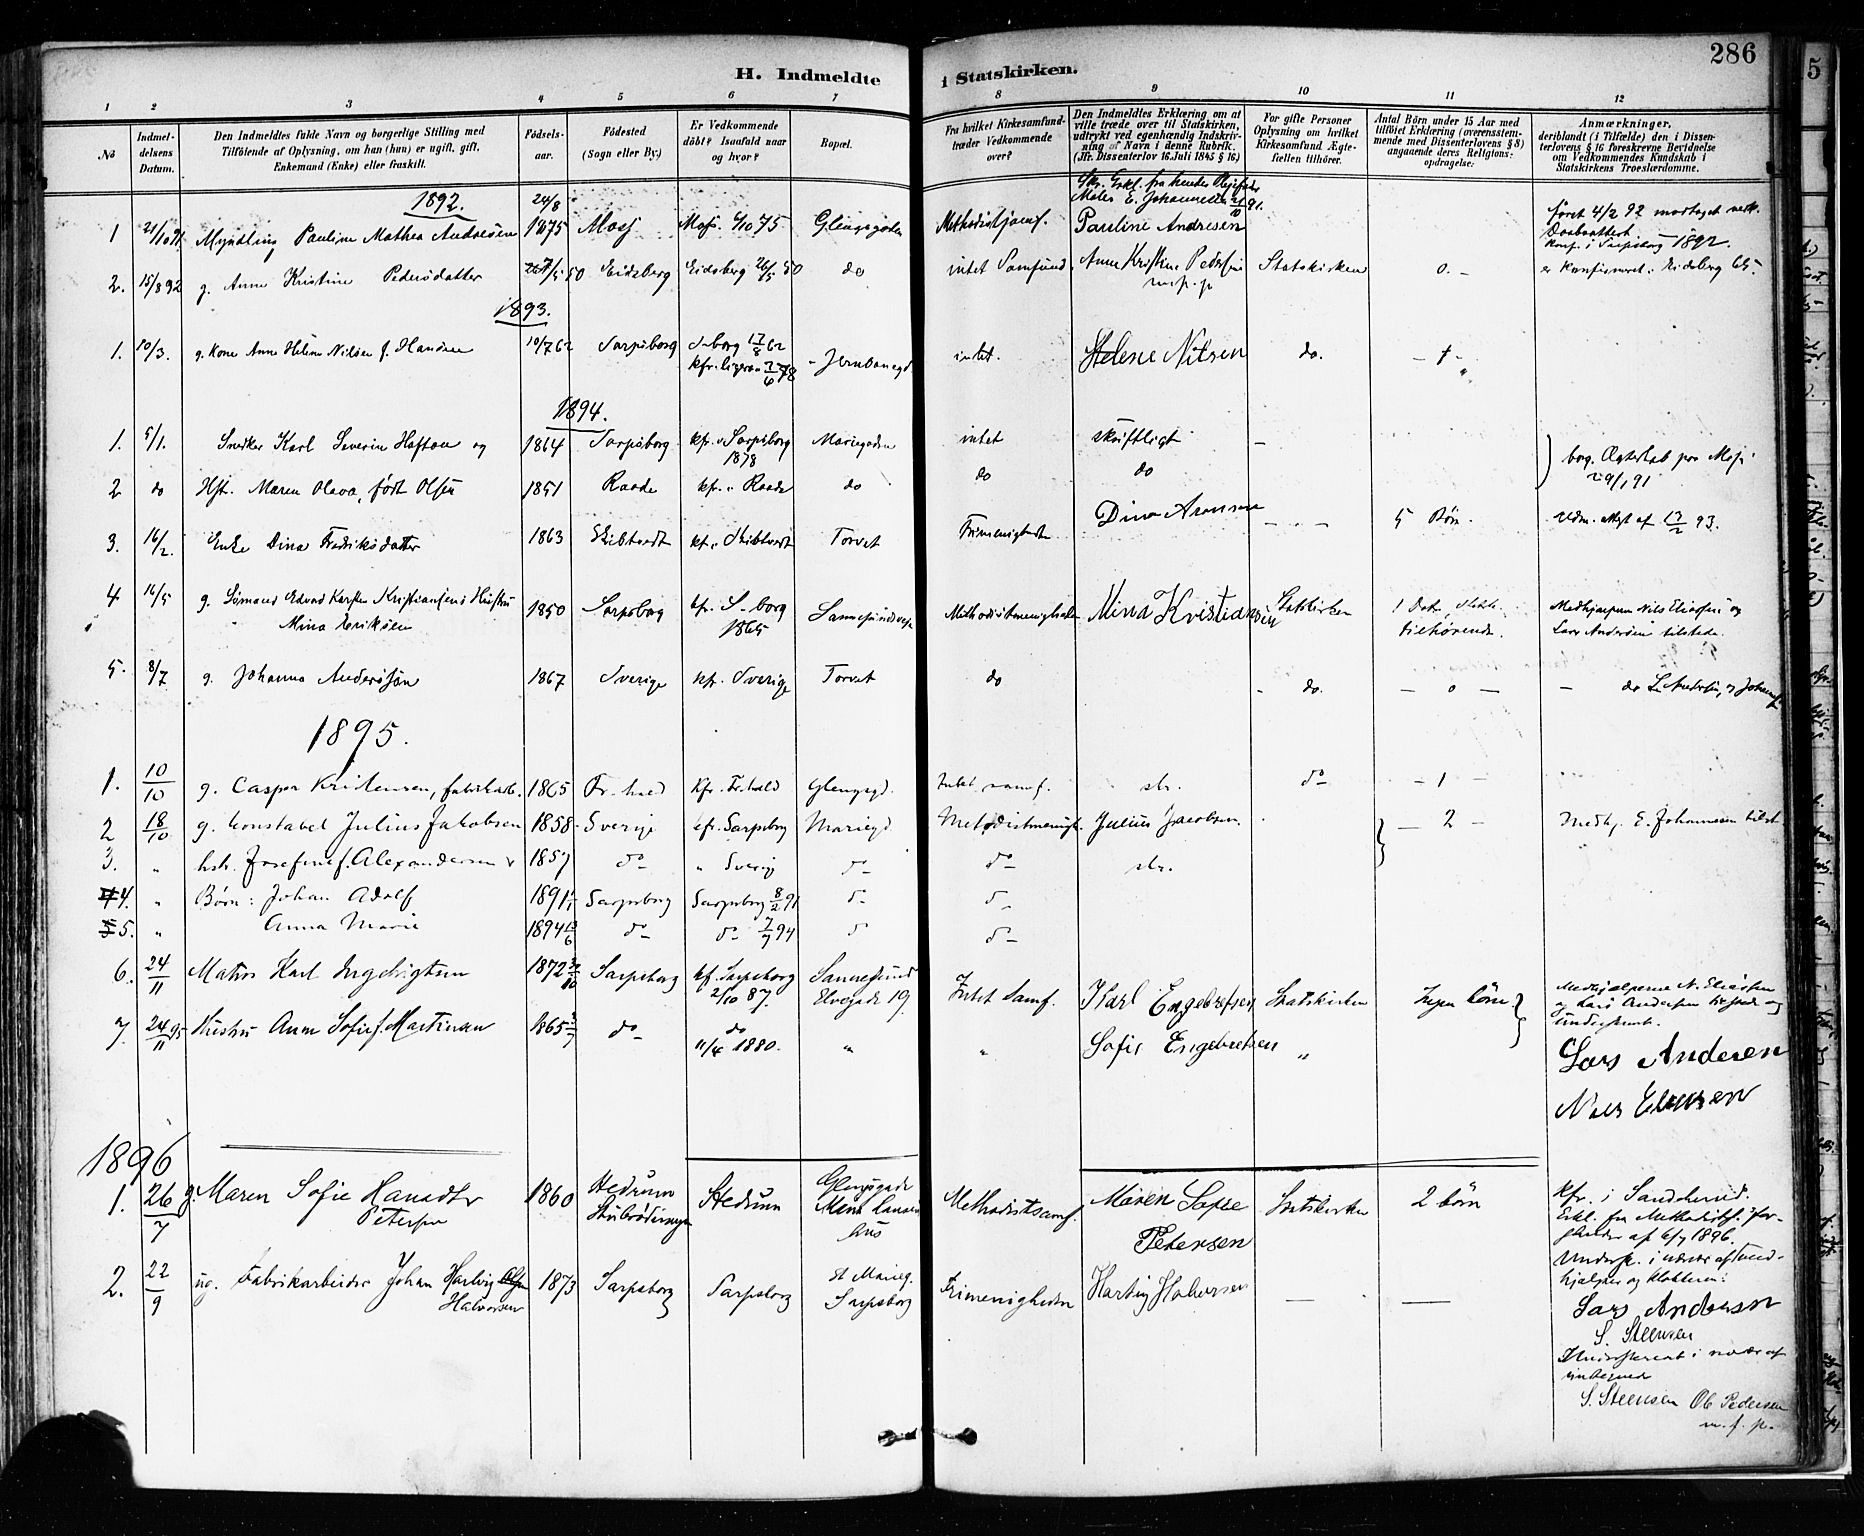 286
H. Indmeldte i Statskirken.
1 2 3 4 5 6 7 8 9 10 11 12
No
Indmeldelsens Datum.
Den Indmeldtes fulde Navn og borgerlige Stilling med
Tilföiende af Oplysning, om han (hun) er ugift, gift,
Enkemand (Enke) eller fraskilt.
Födselsaar.
Födested
(Sogn eller By.)
Er Vedkommende
döbt? Isaafald naar
og hvor?
Bopæl.
Fra hvilket Kirkesamfund
træder Vedkommende
over?
Den Indmeldtes Erklæring om at
ville træde over til Statskirken,
udtrykt ved egenhændig Indskrivning
of Navn i denne Rubrik.
(Jfr. Dissenterlov 16. Juli 1845 § 16)
For gifte Personer
Oplysning om hvilket
Kirkesamfund Ægtefællen
tilhörer.
Antal Börn under 15 Aar med
tilföiet Erklæring (overensstemmende
med Dissenterlovens § 8)
angaaende deres Religionsopdragelse:
Anmærkninger,
deriblandt (i Tilfælde) den i Dissenterlovens
§ 16 foreskrevne Bevidnelse
om Vedkommendes Kundskab i
Statskirkens Troeslærdomme.
1892.
1 21/10 91 Myndling Pauline Mathea Andresen 24/8 1875 Moss Moss /10 75 Glengsgaden Methodistsamf. Pauline Andresen
Konf. i Sarpsborg 1892.
2. 15/8 92 g. Anne Kristine Pedersdatter /5 50 Eidsberg Eidsberg 26/5 50 do intet Samfund Anne Kristine Pedersen Statskirken 0. - er konfirmeret i Eidsberg 65.
m. p. p
1893.
1. 10/3. g. Kone Anne Helene Nilsen f. Hansen 10/7 62 Sarpsborg S-borg 17/8 62 intet. Helene Nilsen do.
1894.
1. 5/1. Snedker Karl Severin Hafton og 1864 Sarpsborg kfr. i Sarpsborg 1878 Mariegaden intet skriftligt -
2 do Hst. Maren Olava, født Olsen 1851 Raade kfr. i Raade do do do
borg. Ægteskab paa Moss
3. 16/2. Enke Dina Fredriksdatter 1863 Skibtvedt kf. i Skibtvedt Torvet Frimenigheden Dina Aronsen - - - 5 Børn. Vidn. attest af 17/2 93.
4 16/5 g. Sømand Edvard Karsten Kristiansens Hustru 1850 Sarpsborg kfr. S-borg 1865 Sannesundsveien Methodistmenigheden Mina Kristiansen Statskirken
Mina Eriksen
tilhørende.
Medhjælperne Nils Eliassen og
Lars Andersen tilstede.
5. 8/7 g. Johanna Andersson 1867 Sverige kfr. Sverige Torvet do - do. - 0 -
1895.
1. 10/10 g. Casper Kristensen, fabrikarb. 1865 Fr.hald Kfr. Fr.hald Glengsgd. Intet samf. skr. do - 1 -
2 18/10 g. Konstabel Julius Jakobsen 1858 Sverige kfr. Sarpsborg Mariegd. Metodistmenigh. Julius Jacobsen. - 2 - Medhj. E. Johannesen tilst.
3. " hstr. Josefine f. Alexandersen 1857 do " Sverig do do skr.
4. " Børn: Johan Adolf 1891 1/1 Sarpsborg Sarpsborg 8/2 91 do do
5. " Anna Marie 1894 13/6 do do 7/7 94 do do
6. 24/11 Matros Karl Ingebrigtsen 1872 Sarpsborg kf. Sarpsborg 2/10 87. Sannesund Elvegade 19. Intet Samf. Karl Engebretsen Statskirken Ingen børn
Medhjælperne N. Eliassen
og Lars Andersen tilstede og
underskrev.
7. 24/11 95 Hustru Anne Sofie f. Martinsen 1865 do do 11/4 1880. " " Sofie Engebretsen "
Lars Andersen
Nils Eliassen
1896
1. 26/7 g. Maren Sofie Hansdtr Petersen 1860 Hedrum Hedrum Glengsgade Methodistsamf. Maren Sofie Petersen Statskirken 2 børn
Kfr. i Sandeherred.
Erkl. fra Methodistf. forstander af 6/7 1896.
2. 22/9 ug. Fabrikarbeider Johan Hartvig Halvorsen 1873 Sarpsborg Sarpsborg St. Marieg. Sarpsborg Frimenigheden Hartvig Halvorsen — —
Undersk. i nærvær af Medhjælper og Klokkeren:
Lars Andersen
S. Steensen
Underskrevet i nærvær af
undertegnede
S. Steensen Ole Pedersen
m. f. p.